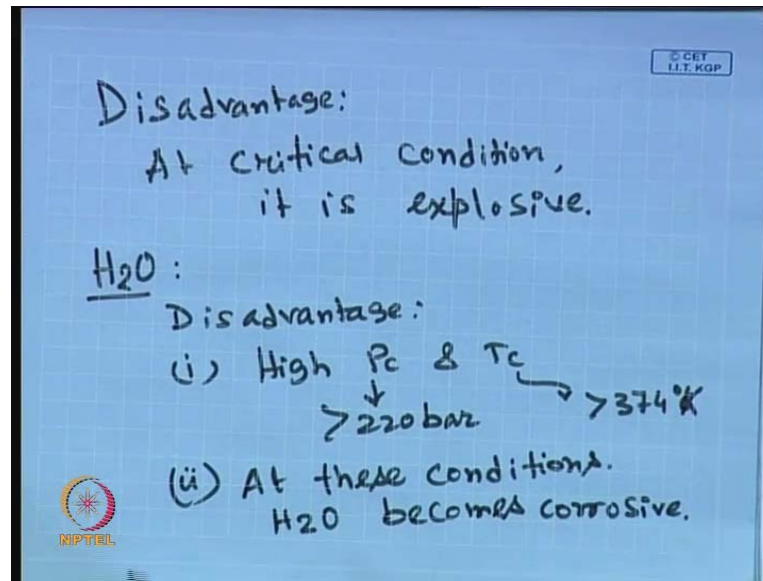 © CET
I.I.T. KGP
Disadvantage:
At critical condition,
it is explosive.
H2O :
Disadvantage:
(i) High Pc & Tc
>220 bar
>374°K
(ii) At these conditions.
H2O becomes corrosive.
NPTEL